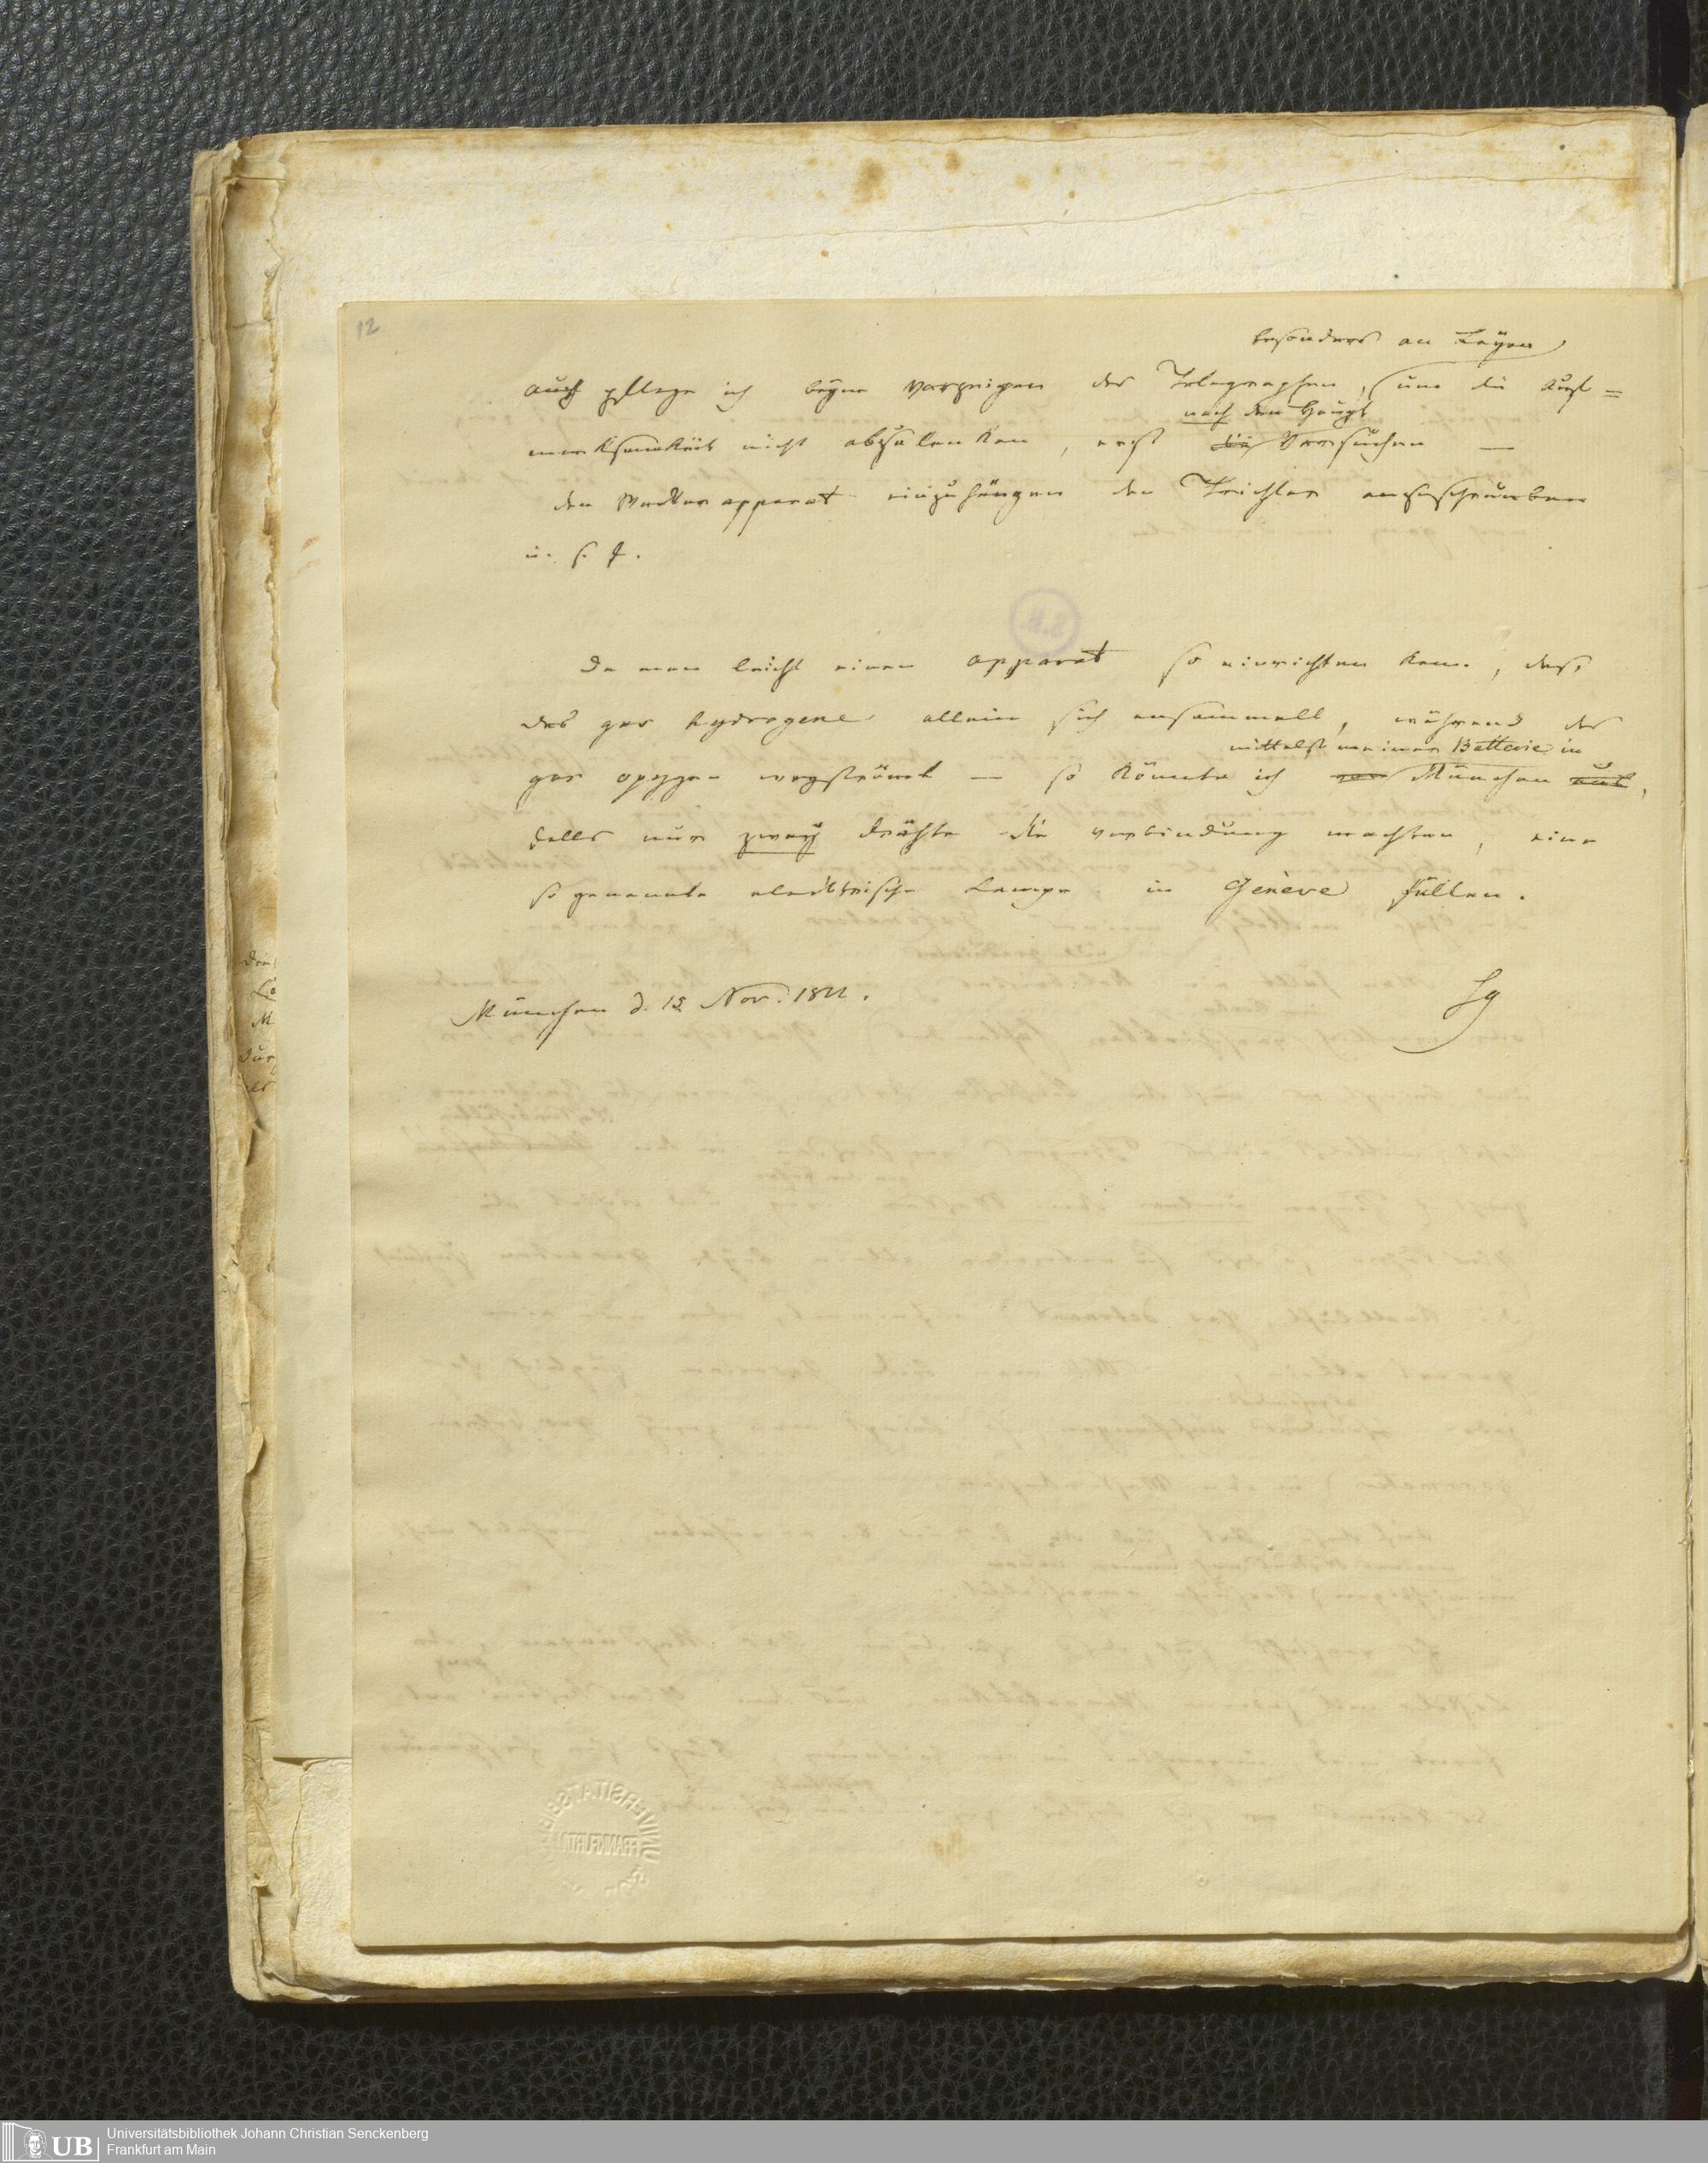 12
besonders an Layen,
auch pflege ich beym vorzeigen des Telegraphen, um die Auf=
nach den Haupt
merksamkeit nicht abzulenken, erst die Versuchen —
den Wecker apparat einzuhängen den Trichter anzuschrauben
u. s. f.
Da man leicht einen apparat so einrichten kann, dass
das gas hydrogene allein sich ansammelt, während das
mittelst meiner Batterie in
gas oxygen wegströmt — so könnte ich von München aus,
falls nur zwey Drähte die verbindung machten, eine
so genannte electrische Lampe in Genève füllen.
München d. 12 Nov. 1811.
Sg
Universitätsbibliothek Johann Christian Senckenberg
UB Frankfurt am Main